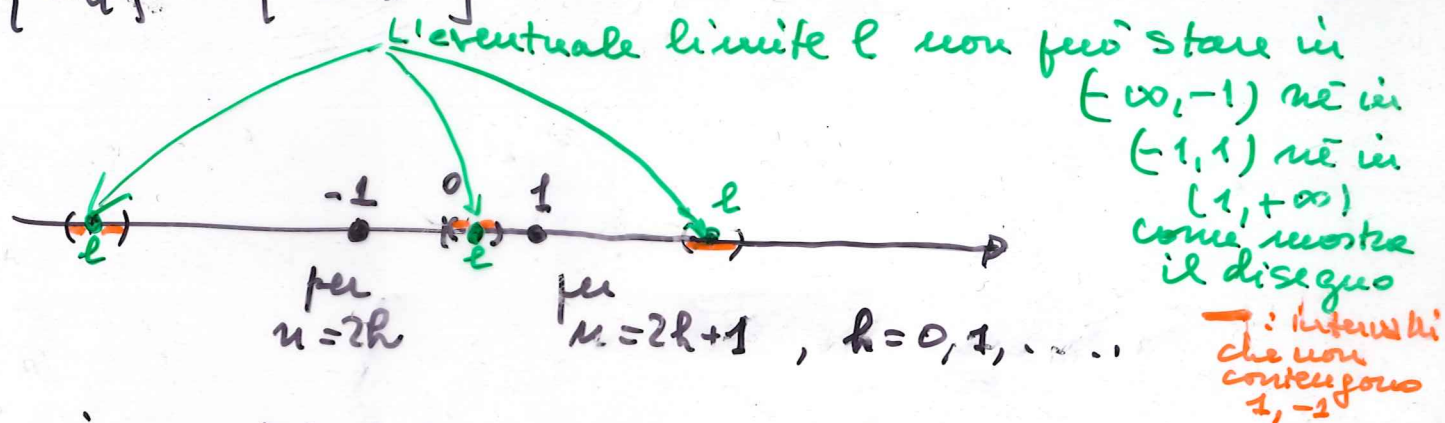 L'eventuale limite l non può stare in
(-∞,-1) né in
(-1,1) né in
(1,+∞)
come mostra
il disegno
-1 0 1 l
l l
per per
n=2h n=2h+1 , h=0,1,.....
: intervalli
che non
contengono
1,-1